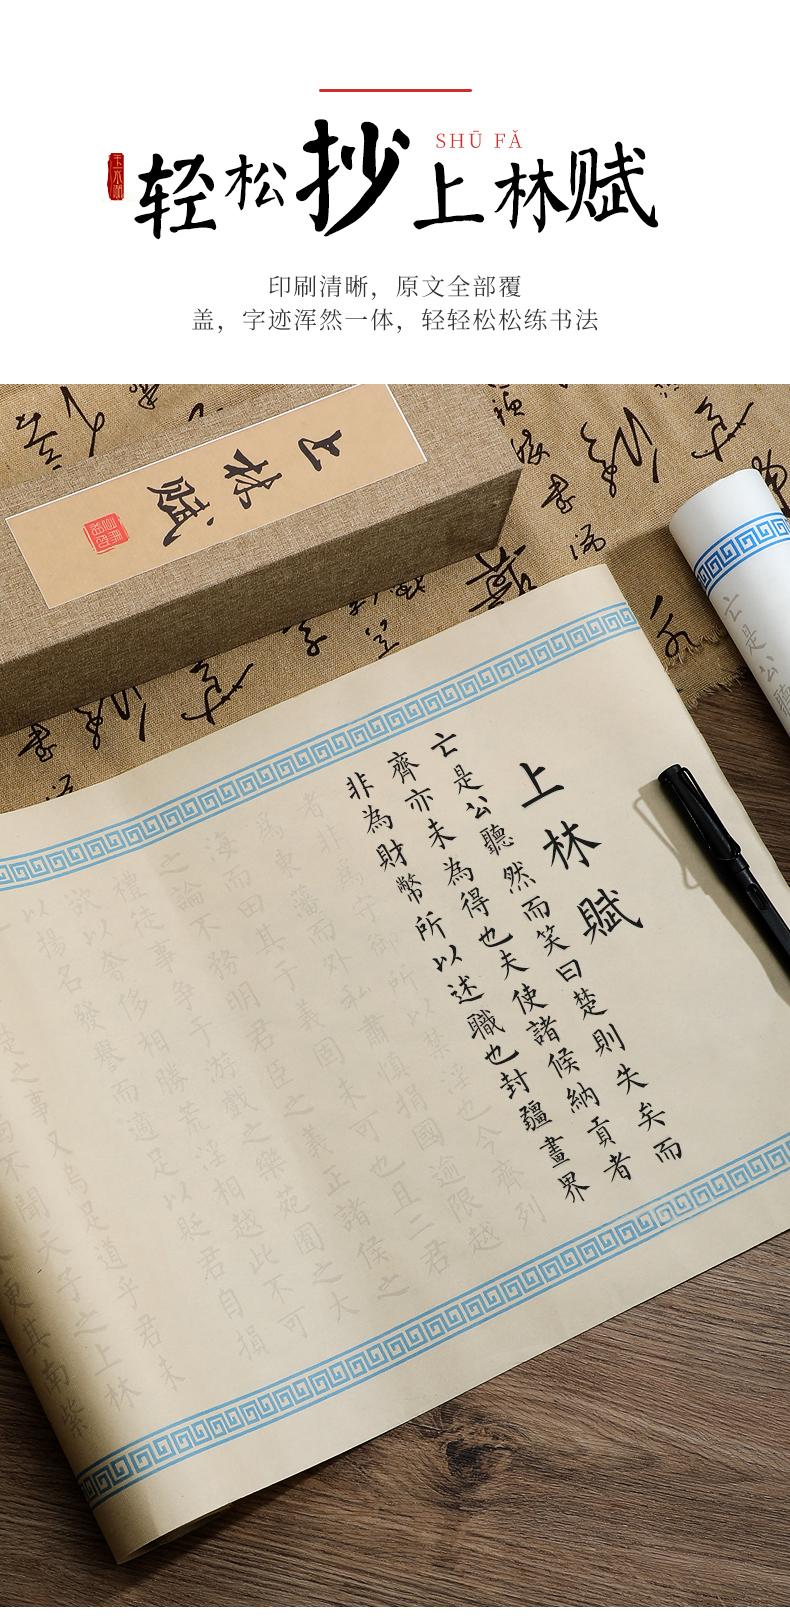 SHŪ FǍ
轻松抄上林赋
印刷清晰，原文全部覆
盖，字迹浑然一体，轻轻松松练书法
上林赋
亡是公聽
上林賦
亡是公聽然而笑曰楚則失矣而
齊亦未為得也夫使諸候納貢者
非為財幣所以述職也封疆畫界
者非為守御所以禁淫也今齊列
為東藩而外私肅慎捐國逾限越
海而田其于義固未可也且二君
之論不務明君臣之義正諸侯之
禮徒事爭于游戲之樂苑囿之大
欲以奢侈相勝荒淫相越此不可
以揚名發譽而適足以貶君自損
楚之事又烏足道乎君未
不聞天子之上林
更其南紫